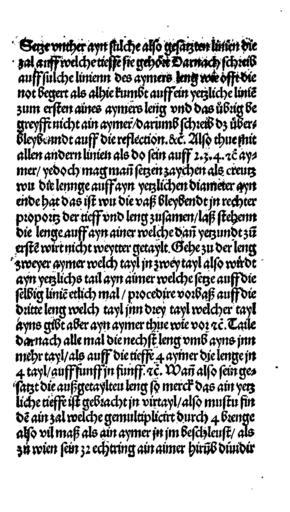 Setze vnther ayn sulche also gesatzten linien die
zal auff welche tieffe sie gehört Darnach schreib
auff sulche linienn des aymers leng wie offt die
not begert als alhie kumbt auff ein yetzliche linie
zum ersten aines aymers leng vnd das übrig be
greyfft nicht ain aymer/ darumb schreib dz über-
bleybendt auff die reflection. ⁊c. Also thue mit
allen andern linien als do sein auff 2.3.4. ⁊c ay-
mer/ yedoch mag man setzen zaychen als creutz
wu die lennge auff ayn yetzlichen diameter ayn
ende hat das ist wu die vaß bleybendt in rechter
proportz der tieff vnd leng zusamen/ laß stehenn
die lenge auff ayn ainer welche dañ yetzundt zů
erstē wirt nicht weytter getaylt. Gehe zu der leng
zweyer aymer welch tayl jn zwey tayl also wirdt
ayn yetzlichs tail ayn aimer welche setze auff die
selbig liniē etlich mal/ procedire vorbaß auff die
dritte leng welch tayl jnn drey tayl welcher tayl
ayns gibt aber ayn aymer thue wie vor ⁊c. Taile
darnach alle mal die nechst leng vmb ayns jnn
mehr tayl/ als auff die tieffe 4 aymer die lenge jn
4 tayl/ auff funff jn funff. ⁊c. Wañ also sein ge-
satzt die außgetaylten leng so merck das ain yetz
liche tieffe ist gebracht in virtayl/ also mustu fin
dē ain zal welche gemultiplicirt durch 4 brenge
also vil maß als ain aymer jn jm beschleust/ als
zů wien sein 32 echtring ain aimer hirüb diuidir